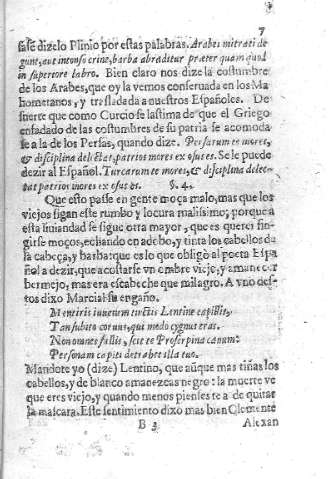 7
sase dizelo Plinio por estas palabras. Arabes mitrati de
gunt, aut intonso crine, barba abraditur præter quam quod
in superiore labro. Bien claro nos dize la costumbre
de los Arabes, que oy la vemos conseruada en los Ma
hometanos, y trasladada a nuestros Españoles. De
suerte que como Curcio se lastima de que el Griego
enfadado de las costumbres de su patria se acomoda
se a la de los Persas, quando dize. Persarum te mores,
& disciplina delectat, patrios mores exosus es. Se le puede
dezir al Español. Turcarum te mores, & disciplina delec-
tat patrios mores exosus es. §. 4.
Que esto passe en gente moça malo, mas que los
viejos sigan este rumbo y locura malissimo; porque a
esta liuiandad se sigue otra mayor, que es querei fin-
girse moços, echando en adobo, y tinta los cabellos de
la cabeça, y barba: que es lo que obligò al poeta Espa
ñol a dezir, que acostarse vn ombre viejo, y amanecer
bermejo, mas era escabeche que milagro. A vno des-
tos dixo Marcial su engaño.
Mentiris iuuenem tinctis Lentine capillis,
Tan subito coruus, qui modo cygnus eras.
Non omnes fallis, scit te Proserpina canum:
Personam capiti detrahet illa tuo.
Mandote yo (dize) Lentino, que aũque mas tiñas los
cabellos, y de blanco amanezcas negro: la muerte ve
que eres viejo, y quando menos pienses te a de quitar
la mascara. Este sentimiento dixo mas bien Clemente
B 3 Alexan